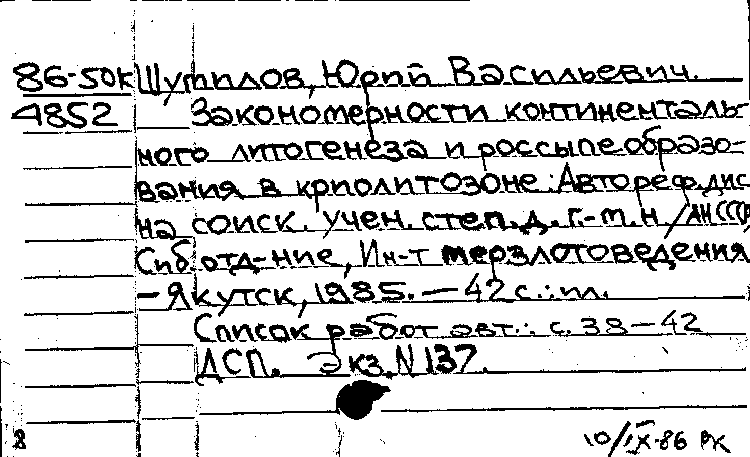 86-50к Шутилов, Юрий Васильевич.
4852 Закономерности континенталь-
ного литогенеза и россыпеобразо-
вания в криолитозоне: Автореф. дис
на соиск. учен. степ. д. г.-м. н. / АН СССР,
Сиб. отд-ние, Ин-т мерзлотоведения
- Якутск, 1985. — 42 с.: ил.
Список работ авт.: с. 38-42
ДСП. Экз. N 137.
8 10/IX-86 РК